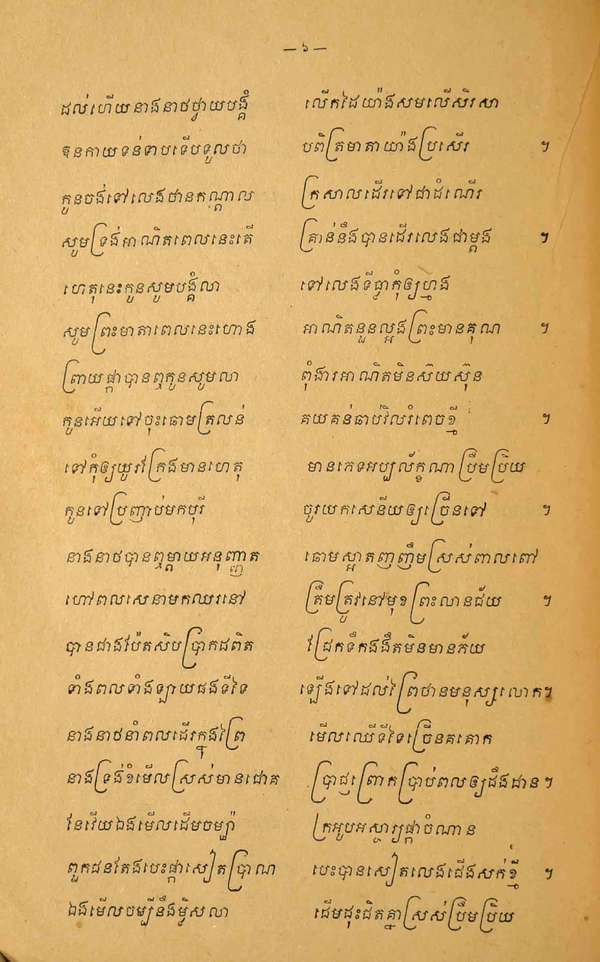 — ៦ —
ដល់ហើយនាងនាថថ្វាយបង្គំ លើកដៃយ៉ាងសមលើសិរសា
ឱនកាយទន់ទាបទើបទូលថា បពិត្រមាតាយ៉ាងប្រសើរ ។
កូនចង់ទៅលេងឋានកណ្ដាល ក្រសាលដើរទៅជាដំណើរ
សូមទ្រង់អាណិតពេលនេះតើ គ្រាន់នឹងបានដើរលេងជាម្ដង ។
ហេតុនេះកូនសូមបង្គំលា ទៅលេងទីធ្លាកុំឲ្យហ្មង
សូមព្រះមាតាពេលនេះហោង អាណិតនួនល្អងព្រះមានគុណ ។
ព្រាយផ្កាបានឮកូនសូមលា ពុំងារអាណិតមិនស៊យស៊ុន
កូនអើយទៅចុះឆោមត្រលន់ គយគន់ឆាប់វិលរំពេចខ្មី ។
ទៅកុំឲ្យយូរក្រែងមានហេតុ មានភេទអប្បល័ក្ខណាប្រឹមប្រិយ
កូនទៅប្រញាប់មកបុរី ចូរយកសេនីយឲ្យច្រើនទៅ ។
នាងនាថបានឮម្ដាយអនុញ្ញាត ឆោមស្អាតញញឹមស្រស់ពាលពៅ
ហៅពលសេនាមកឈរនៅ ត្រឹមត្រូវនៅមុខព្រះលានជ័យ ។
បានជាងប៉ែតសិបប្រាកដពិត ជ្រែកទឹកងងឹតមិនមានភ័យ
ទាំងពលទាំងឡាយផងទីទៃ ឡើងទៅដល់ព្រៃឋានមនុស្សលោក។
នាងនាថនាំពលដើរក្នុងព្រៃ មើលឈើទីទៃច្រើនគគោក
នាងទ្រង់ខំមើលស្រស់មានជោគ ប្រាជ្ញព្រោកប្រាប់ពលឲ្យដឹងដាន។
នែវើយឯងមើលដើមចម្ប៉ា ក្រអូបអស្ចារ្យផ្កាចំណាន
ពួកជនតែងបេះផ្កាសៀតប្រាណ បេះបានសៀតលេងជើងសក់ខ្មី ។
ឯងមើលចម្បីនឹងម្លិសលា ដើមដុះជិតគ្នាស្រស់ប្រឹមប្រិយ